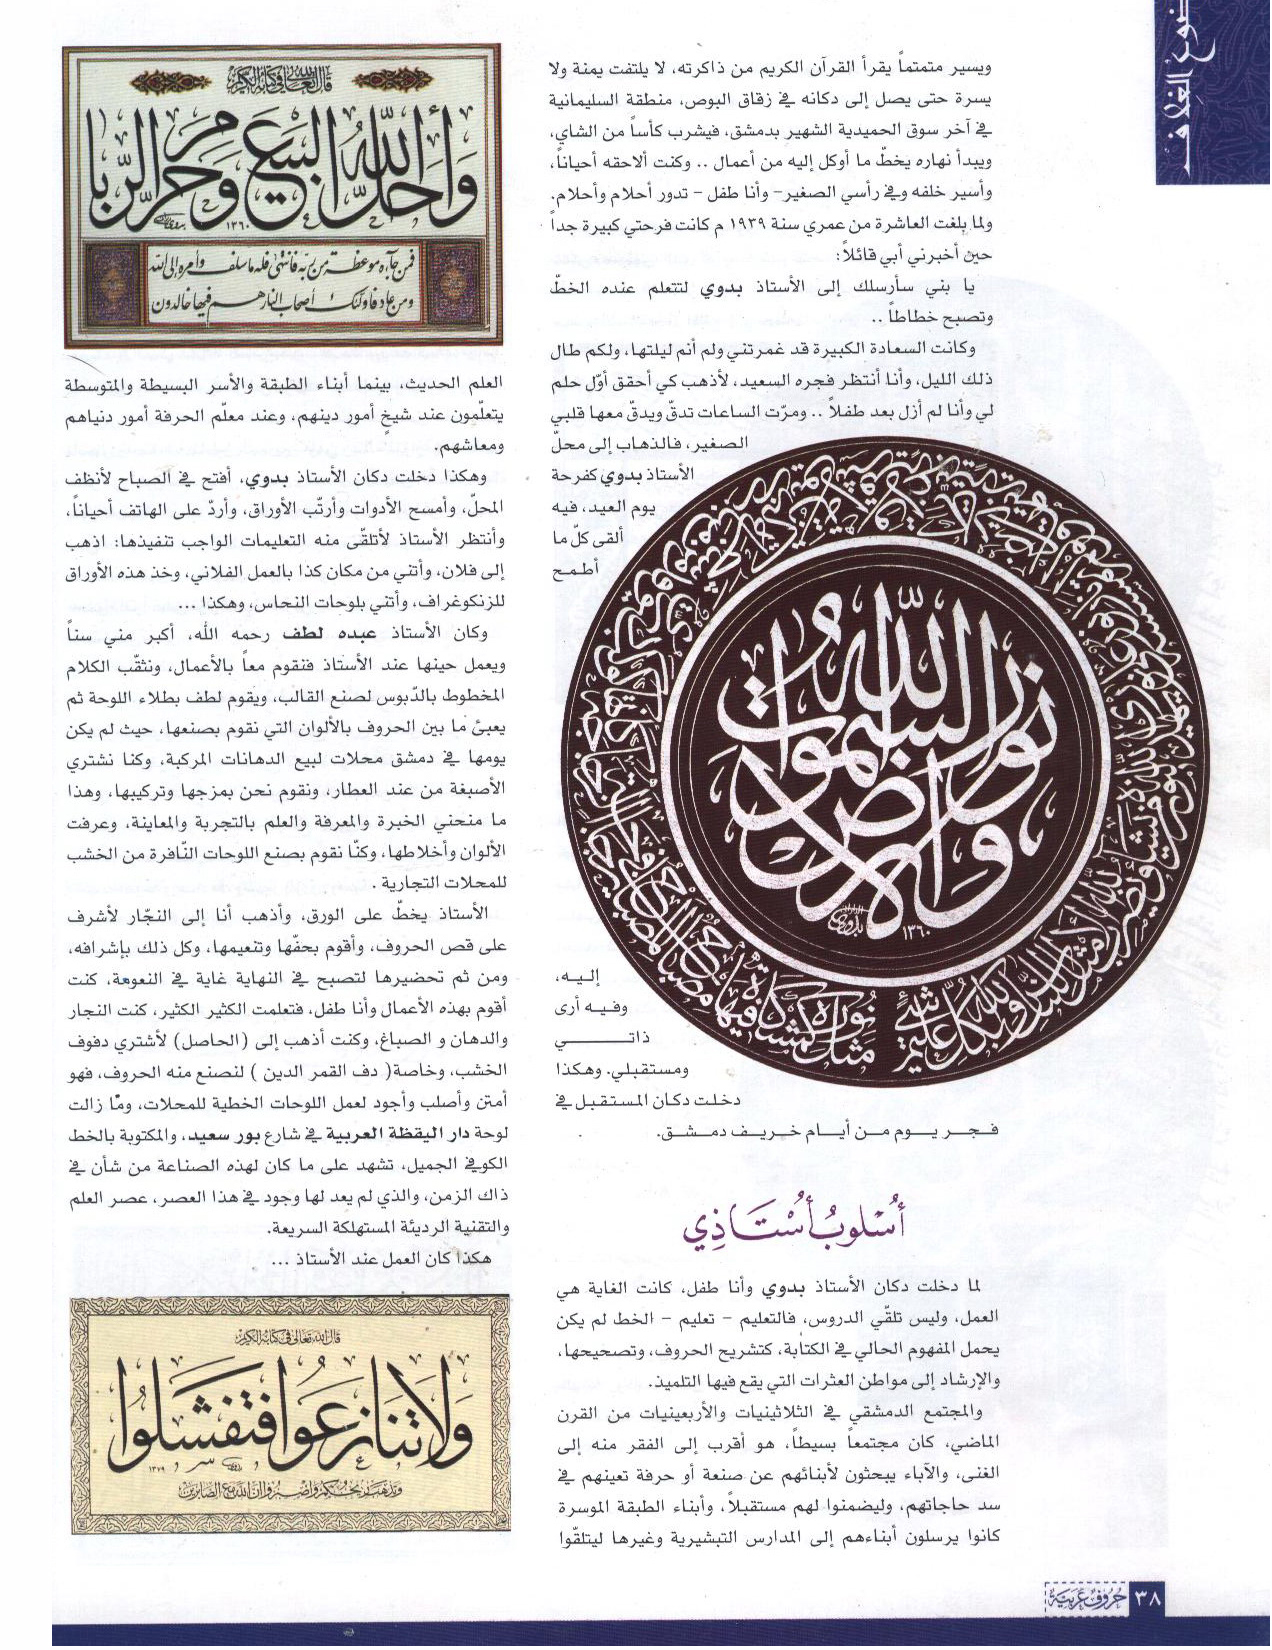 موضوع الغلاف
ويسير متمتماً يقرأ القرآن الكريم من ذاكرته، لا يلتفت يمنة ولا
يسرة حتى يصل إلى دكانه في زقاق البوص، منطقة السليمانية
في آخر سوق الحميدية الشهير بدمشق، فيشرب كأساً من الشاي،
ويبدأ نهاره يخطّ ما أوكل إليه من أعمال .. وكنت ألاحقه أحياناً،
وأسير خلفه وفي رأسي الصغير– وأنا طفل – تدور أحلام وأحلام.
ولما بلغت العاشرة من عمري سنة ١٩٣٩ م كانت فرحتي كبيرة جداً
حين أخبرني أبي قائلاً:
يا بني سأرسلك إلى الأستاذ بدوي لتتعلم عنده الخطّ
وتصبح خطاطاً ..
وكانت السعادة الكبيرة قد غمرتني ولم أنم ليلتها، ولكم طال
ذلك الليل، وأنا أنتظر فجره السعيد، لأذهب كي أحقق أوّل حلم
لي وأنا لم أزل بعد طفلاً .. ومرّت الساعات تدقّ ويدقّ معها قلبي
الصغير، فالذهاب إلى محلّ
الأستاذ بدوي كفرحة
يوم العيد، فيه
ألقى كلّ ما
أطمح
نور السموات والأرض الله
بدوي
١٣٦٠
مثل نوره كمشكاة فيها مصباح المصباح
إليه،
وفيه أرى
ذاتي
ومستقبلي. وهكذا
دخلت دكان المستقبل في
فجر يوم من أيام خريف دمشق.
أسلوب أستاذي
لما دخلت دكان الأستاذ بدوي وأنا طفل، كانت الغاية هي
العمل، وليس تلقّي الدروس، فالتعليم – تعليم – الخط لم يكن
يحمل المفهوم الحالي في الكتابة، كتشريح الحروف، وتصحيحها،
والإرشاد إلى مواطن العثرات التي يقع فيها التلميذ.
والمجتمع الدمشقي في الثلاثينيات والأربعينيات من القرن
الماضي، كان مجتمعاً بسيطاً، هو أقرب إلى الفقر منه إلى
الغنى، والآباء يبحثون لأبنائهم عن صنعة أو حرفة تعينهم في
سد حاجاتهم، وليضمنوا لهم مستقبلاً، وأبناء الطبقة الموسرة
كانوا يرسلون أبناءهم إلى المدارس التبشيرية وغيرها ليتلقّوا
قال الله تعالى في كتابه الكريم
وأحل الله البيع وحرم الربا
١٣٦٠
فمن جاءه موعظة من ربه فانتهى فله ما سلف وأمره إلى الله
ومن عاد فأولئك أصحاب النار هم فيها خالدون
العلم الحديث، بينما أبناء الطبقة والأسر البسيطة والمتوسطة
يتعلّمون عند شيخٍ أمور دينهم، وعند معلّم الحرفة أمور دنياهم
ومعاشهم.
وهكذا دخلت دكان الأستاذ بدوي، أفتح في الصباح لأنظف
المحلّ، وأمسح الأدوات وأرتّب الأوراق، وأردّ على الهاتف أحياناً،
وأنتظر الأستاذ لأتلقّى منه التعليمات الواجب تنفيذها: اذهب
إلى فلان، وأتني من مكان كذا بالعمل الفلاني، وخذ هذه الأوراق
للزنكوغراف، وأتني بلوحات النحاس، وهكذا ...
وكان الأستاذ عبده لطف رحمه الله، أكبر مني سناً
ويعمل حينها عند الأستاذ فنقوم معاً بالأعمال، ونثقّب الكلام
المخطوط بالدّبوس لصنع القالب، ويقوم لطف بطلاء اللوحة ثم
يعبئ ما بين الحروف بالألوان التي نقوم بصنعها، حيث لم يكن
يومها في دمشق محلات لبيع الدهانات المركبة، وكنا نشتري
الأصبغة من عند العطار، ونقوم نحن بمزجها وتركيبها، وهذا
ما منحني الخبرة والمعرفة والعلم بالتجربة والمعاينة، وعرفت
الألوان وأخلاطها، وكنّا نقوم بصنع اللوحات النّافرة من الخشب
للمحلات التجارية .
الأستاذ يخطّ على الورق، وأذهب أنا إلى النجّار لأشرف
على قص الحروف، وأقوم بحفّها وتنعيمها، وكل ذلك بإشرافه،
ومن ثم تحضيرها لتصبح في النهاية غاية في النعومة، كنت
أقوم بهذه الأعمال وأنا طفل، فتعلمت الكثير الكثير، كنت النجار
والدهان و الصباغ، وكنت أذهب إلى (الحاصل) لأشتري دفوف
الخشب، وخاصة( دف القمر الدين ) لنصنع منه الحروف، فهو
أمتن وأصلب وأجود لعمل اللوحات الخطية للمحلات، وما زالت
لوحة دار اليقظة العربية في شارع بور سعيد، والمكتوبة بالخط
الكوفي الجميل، تشهد على ما كان لهذه الصناعة من شأن في
ذاك الزمن، والذي لم يعد لها وجود في هذا العصر، عصر العلم
والتقنية الرديئة المستهلكة السريعة.
هكذا كان العمل عند الأستاذ ...
قال الله تعالى في كتابه الكريم
ولا تنازعوا فتفشلوا
وتذهب ريحكم واصبروا إن الله مع الصابرين
حروف عربية
٣٨